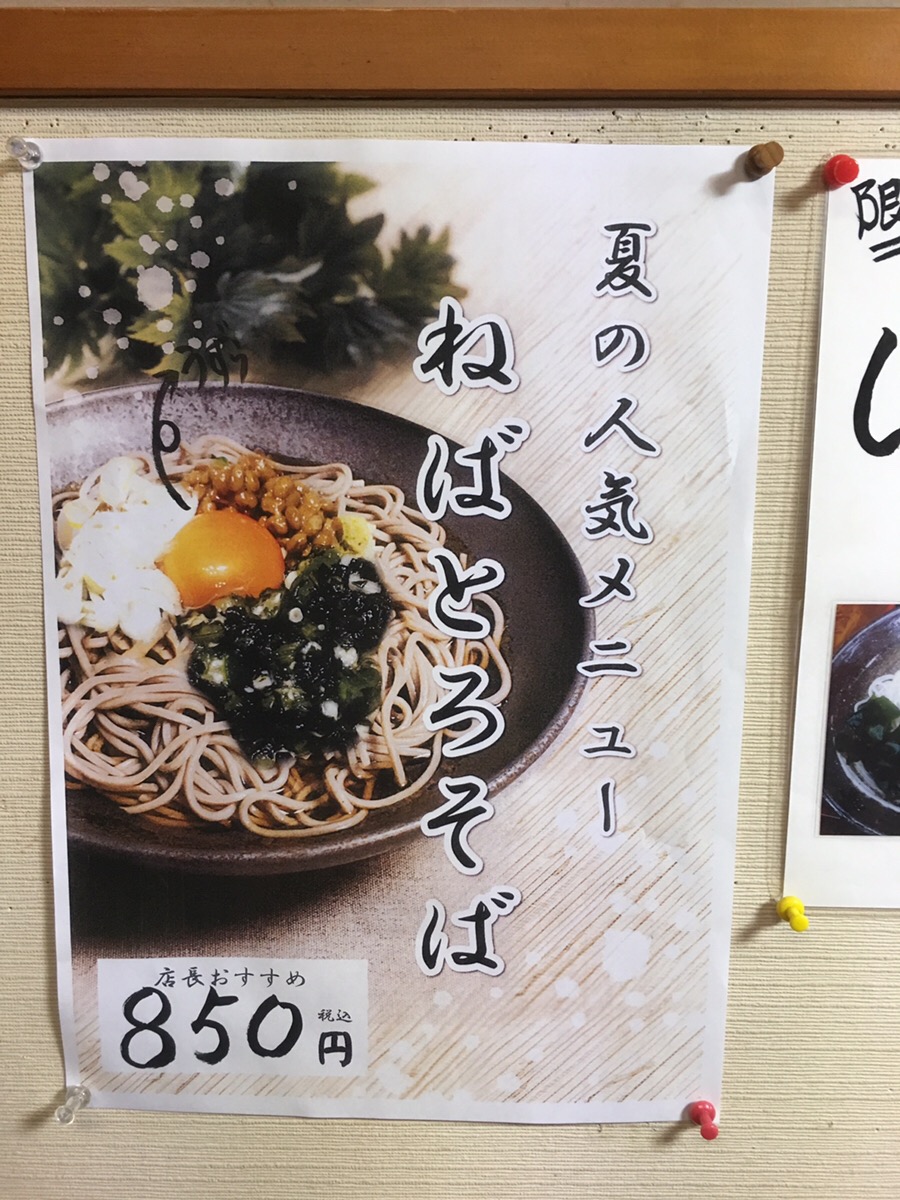 夏の人気メニュー
ねばとろそば
うずら
店長おすすめ
850円
税込
限